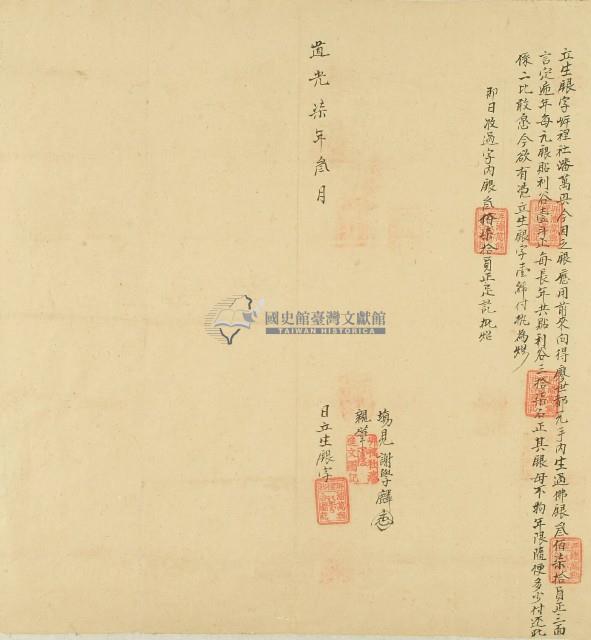 立生銀字岸裡社潘萬興今因乏銀應用前來向得廖世都兄手內生過佛銀叁佰柒拾員正三面
言定逓年每元銀貼利谷壹斗正每長年共貼利谷三拾柒石正其銀母不拘年限隨便多少付还此
係二比敢意今欲有憑立生銀字壹紙付执為炤
即日收過字內銀叁佰柒拾員正足訖批炤
道光柒年叁月
塲見謝學麟
親筆
日立生銀字
國史館臺灣文獻館
TAIWAN HISTORICA